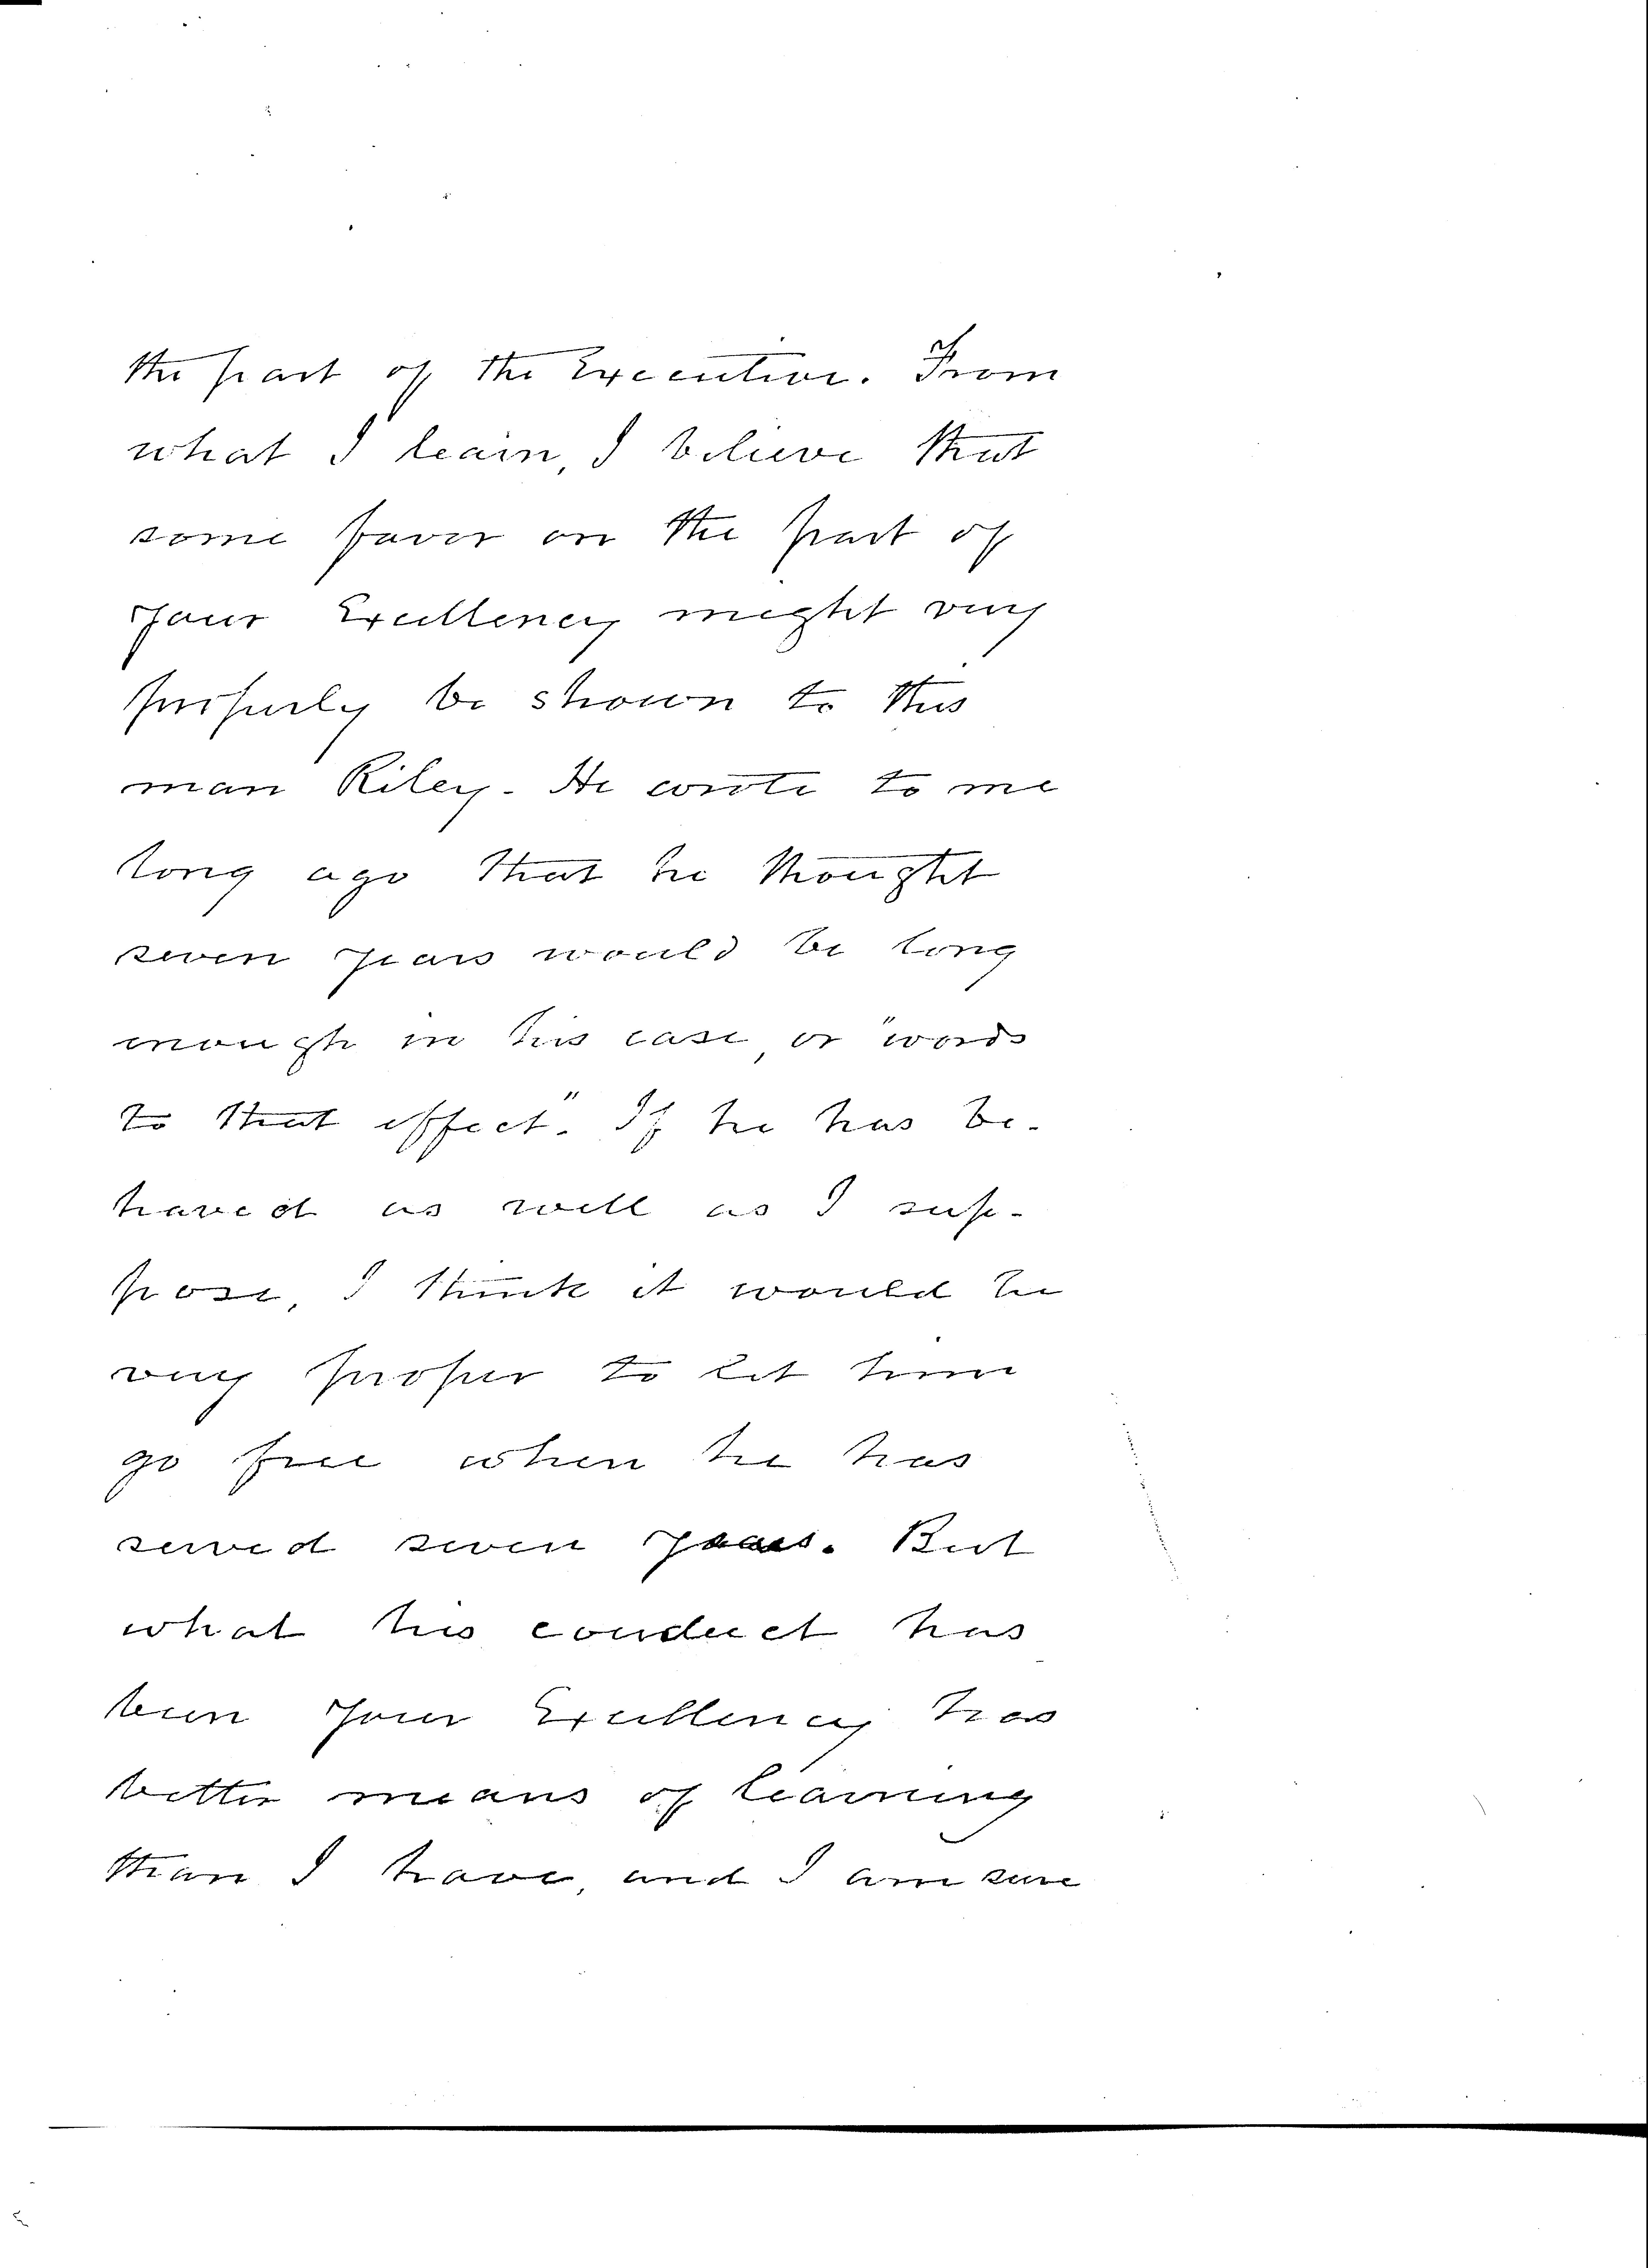 the part of the Executive. From
what I learn, I believe that
some favor on the part of
your Excellency might very
properly be shown to this
man Riley. He wrote to me
long ago that he thought
seven years would be long
enough in his case, or "words
to that effect". If he has be-
haved as well as I sup-
pose, I think it would be
very proper to let him
go free when he has
served seven years. But
what his conduct has
been your Excellency has
better means of learning
than I have, and I am sure